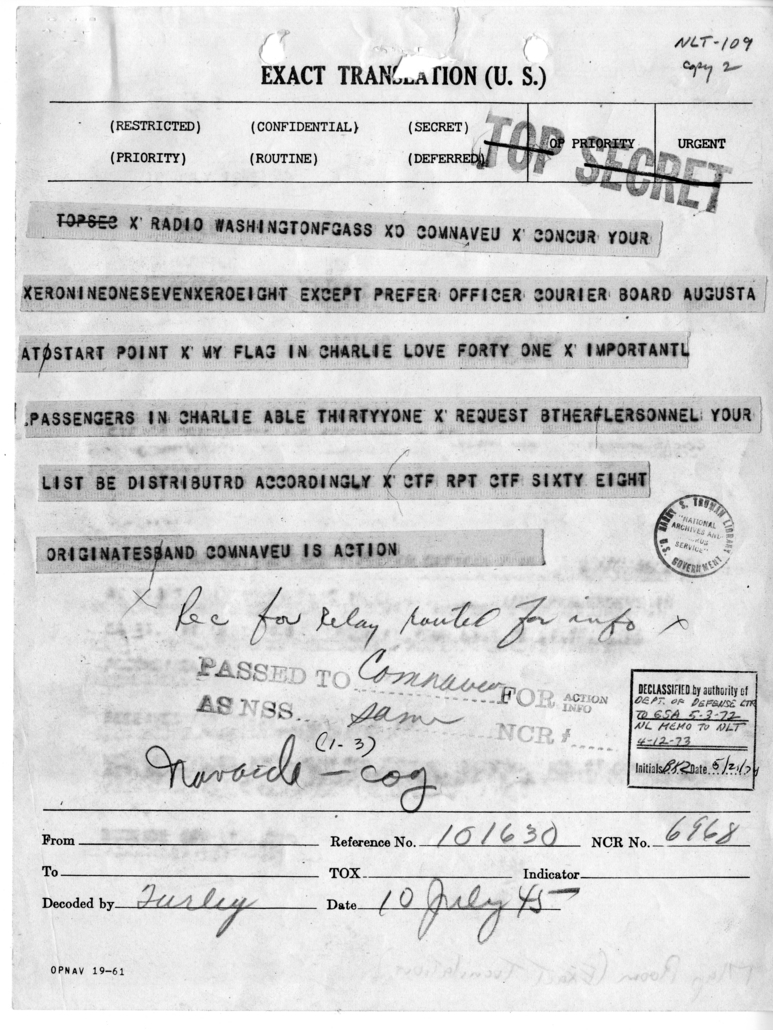 NLT-109
Copy 2
EXACT TRANSLATION (U. S.)
(RESTRICTED) (CONFIDENTIAL) (SECRET) OP PRIORITY URGENT
(PRIORITY) (ROUTINE) (DEFERRED)
TOP SECRET
TOPSEC X RADIO WASHINGTONFGASS XO COMNAVEU X CONCUR YOUR
XERONINEONESEVENXEROEIGHT EXCEPT PREFER OFFICER COURIER BOARD AUGUSTA
AT START POINT X MY FLAG IN CHARLIE LOVE FORTY ONE X IMPORTANTL
.PASSENGERS IN CHARLIE ABLE THIRTYYONE X REQUEST BTHERFLERSONNEL YOUR
LIST BE DISTRIBUTRD ACCORDINGLY X CTF RPT CTF SIXTY EIGHT
ORIGINATESBAND COMNAVEU IS ACTION
HARRY S. TRUMAN LIBRARY
"NATIONAL
ARCHIVES AND
SERVICE"
U.S. GOVERNMENT
X Rec for relay routed for info X
PASSED TO Comnaveu FOR ACTION INFO
AS NSS. same NCR #
(1-3)
Navaide - cog
DECLASSIFIED by authority of
DEPT. OF DEFENSE LTR
TO GSA 5-3-72
NL MEMO TO NLT
4-12-73
Initials Date
From Reference No. 101630 NCR No. 6968
To TOX Indicator
Decoded by Turley Date 10 July 45
OPNAV 19-61